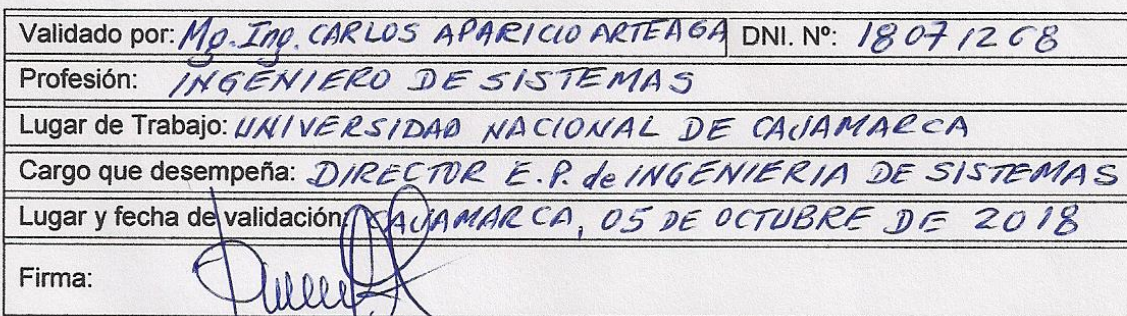 Validado por: Mg. Ing. CARLOS APARICIO ARTEAGA DNI. Nº: 18071268
Profesión: INGENIERO DE SISTEMAS
Lugar de Trabajo: UNIVERSIDAD NACIONAL DE CAJAMARCA
Cargo que desempeña: DIRECTOR E.P. de INGENIERIA DE SISTEMAS
Lugar y fecha de validación: CAJAMARCA, 05 DE OCTUBRE DE 2018
Firma: